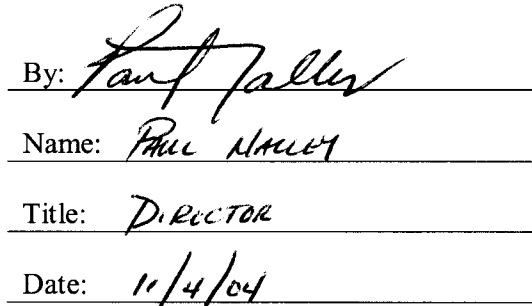 By: Paul Nalley
Name: PAUL NALLEY
Title: DIRECTOR
Date: 11/4/04